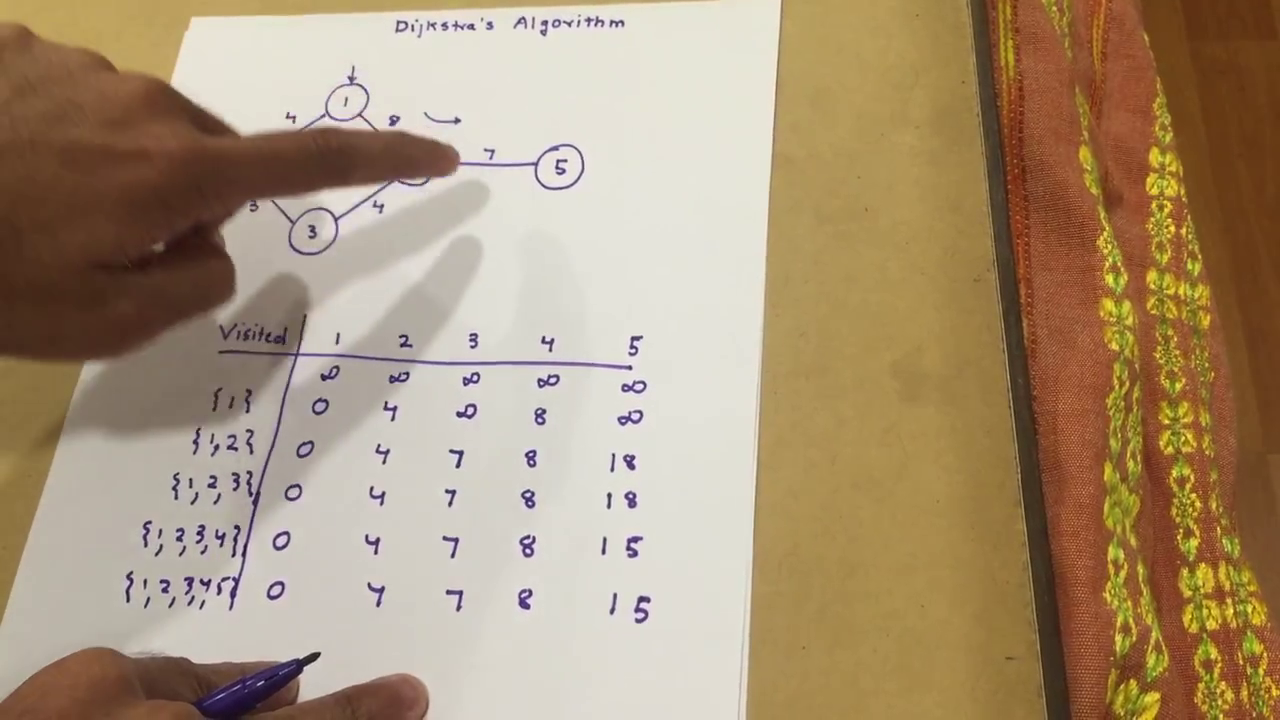 Dijkstra's Algorithm
1
4 8
7
5
3 4
3
Visited 1 2 3 4 5
∞ ∞ ∞ ∞ ∞
{1} 0 4 ∞ 8 ∞
{1,2} 0 4 7 8 18
{1,2,3} 0 4 7 8 18
{1,2,3,4} 0 4 7 8 15
{1,2,3,4,5} 0 4 7 8 15